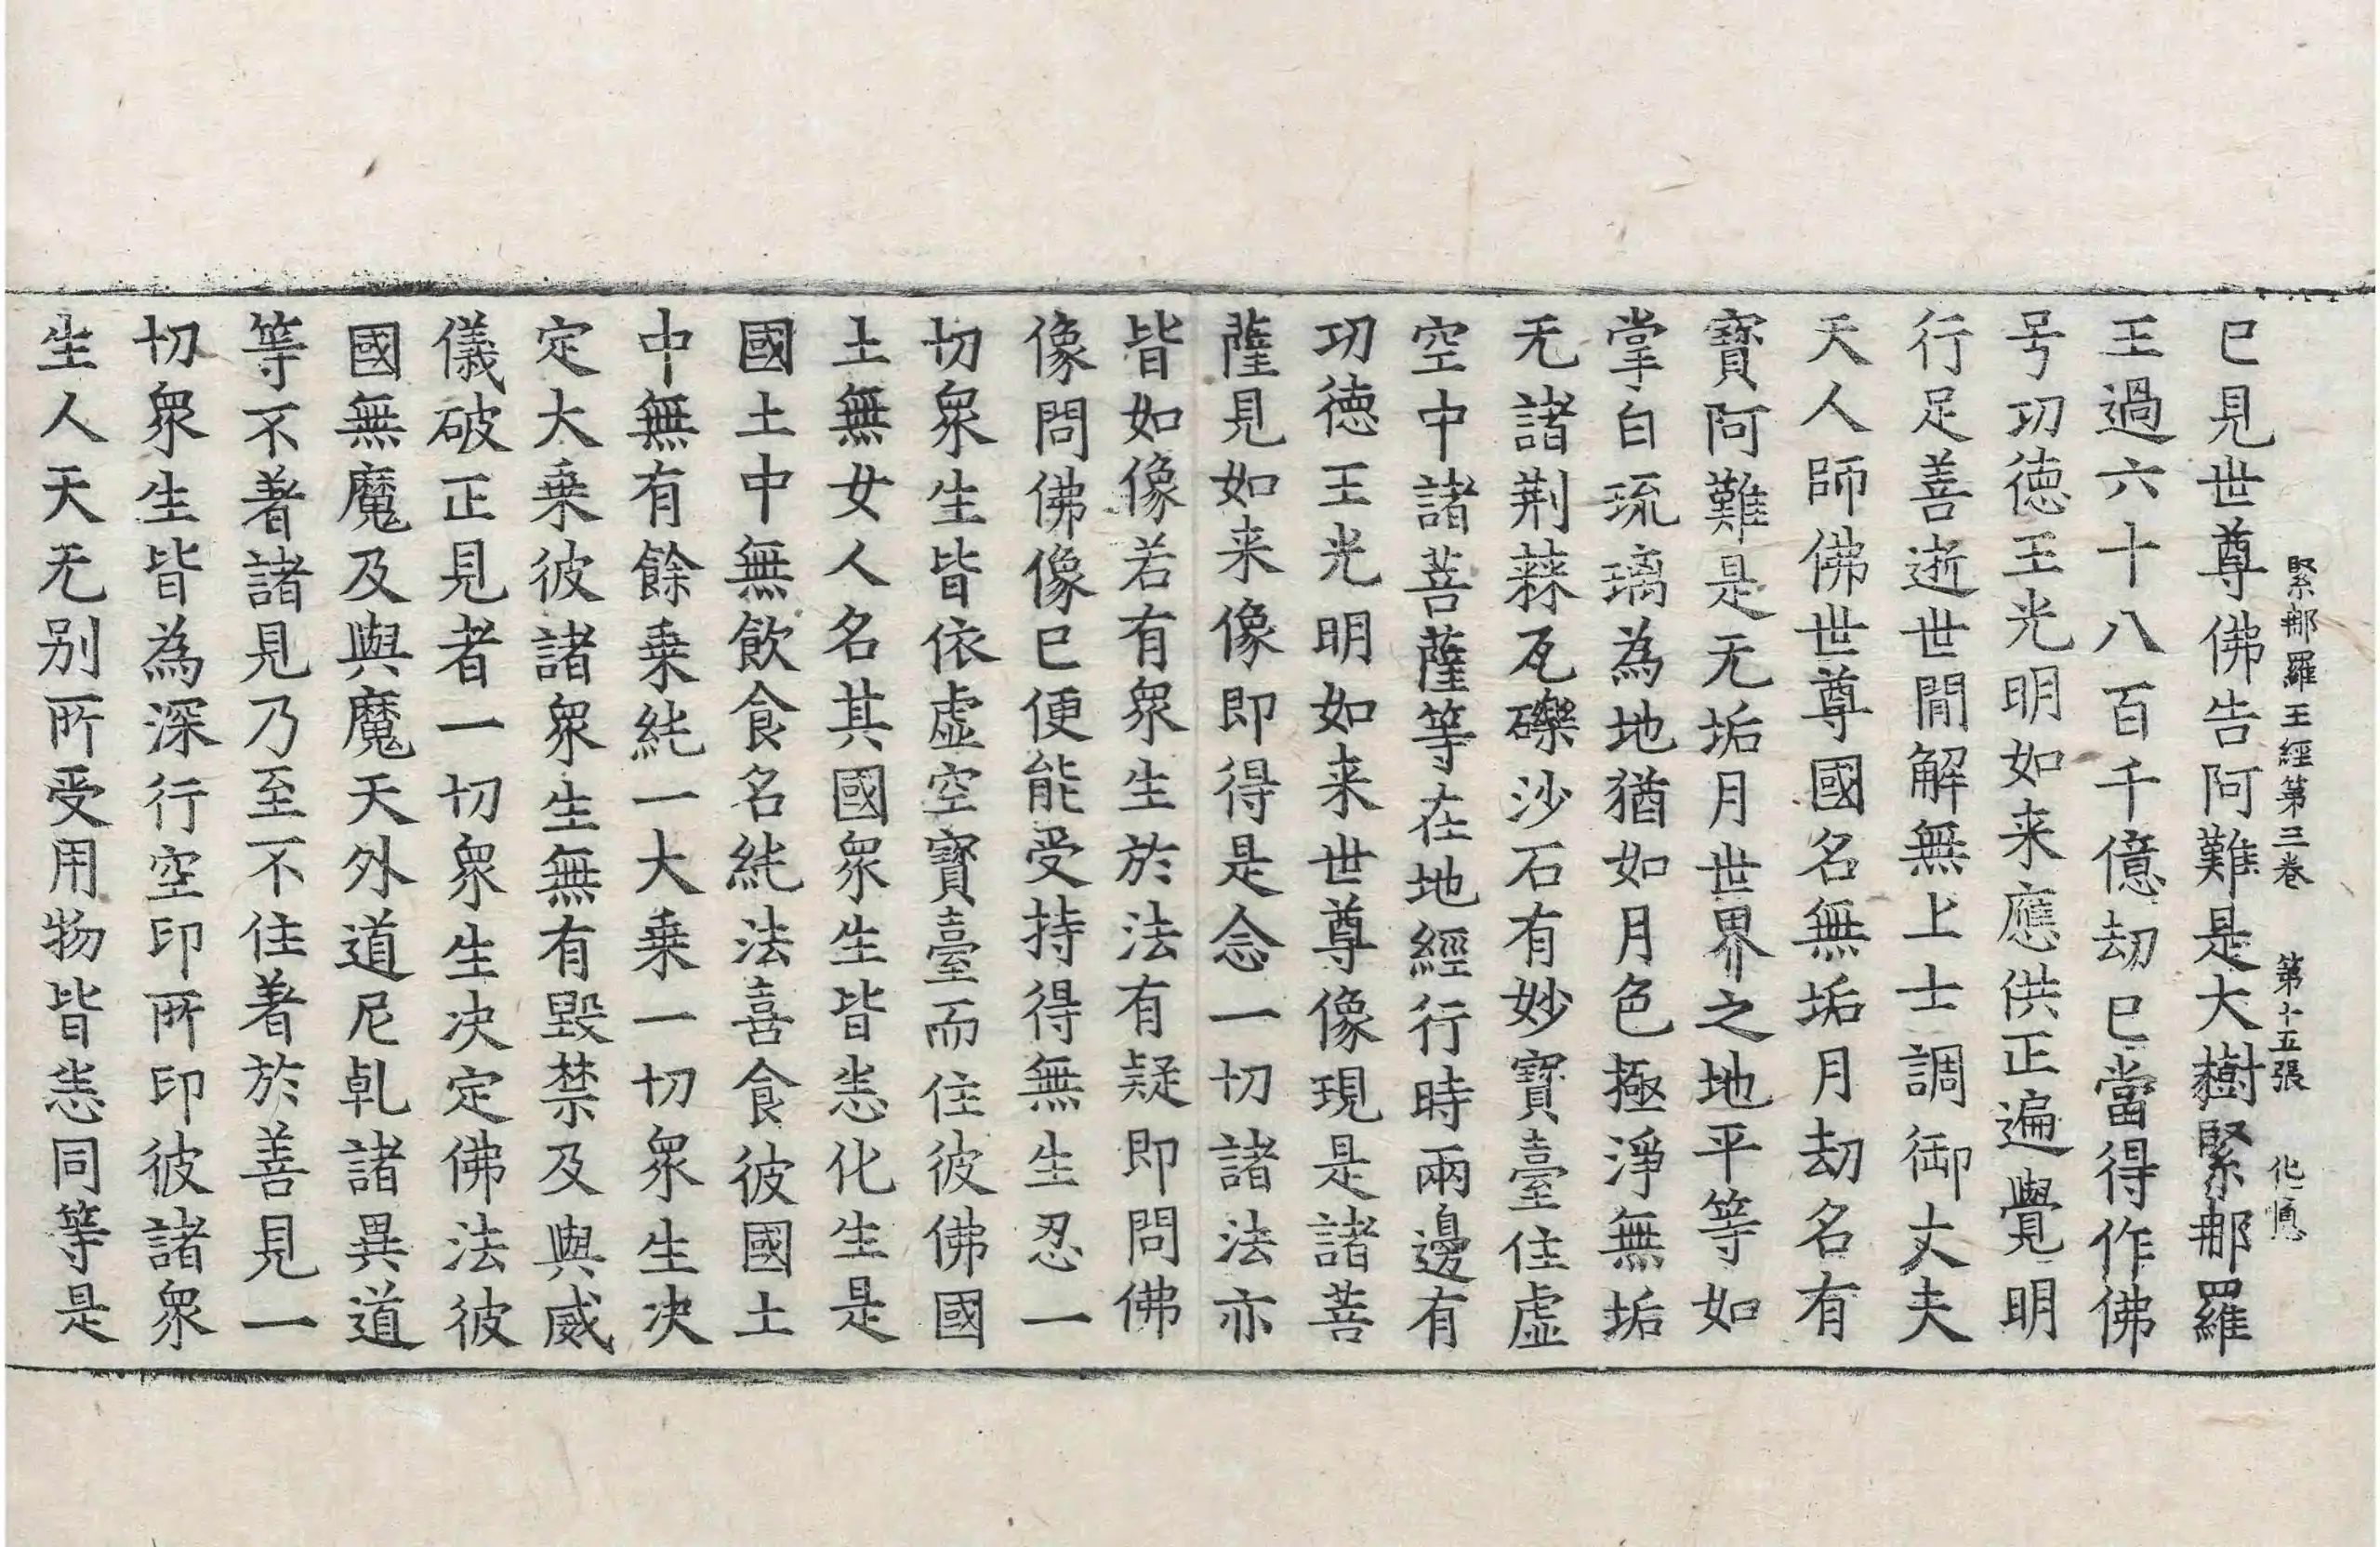 緊那羅王經第三卷　第十五張　化
已見世尊佛告阿難是大樹緊那羅
王過六十八百千億劫已當得作佛
号功徳王光明如来應供正遍覺明
行足善逝世間解無上士調御丈夫
天人師佛世尊國名無垢月劫名有
寳阿難是无垢月世界之地平等如
掌白琉璃為地猶如月色極淨無垢
无諸荆蕀瓦礫沙石有妙寳臺住虛
空中諸菩薩等在地經行時兩邊有
功徳王光明如来世尊像現是諸菩
薩見如来像即得是念一切諸法亦
皆如像若有衆生於法有疑即問佛
像問佛像已便能受持得無生忍一
切衆生皆依虛空寳臺而住彼佛國
土無女人名其國衆生皆悉化生是
國土中無飲食名純法喜食彼國土
中無有餘乗純一大乗一切衆生决
定大乗彼諸衆生無有毀禁及與威
儀破正見者一切衆生决定佛法彼
國無魔及與魔天外道尼乹諸異道
等不著諸見乃至不住著於善見一
切衆生皆為深行空印所印彼諸衆
生人天无别所受用物皆悉同等是